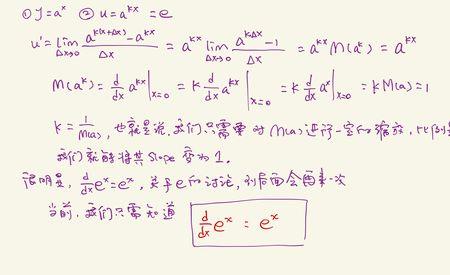 ① y=a^x ② u=a^{kx} =e
u'=lim_{Δx→0} (a^{k(x+Δx)}-a^{kx})/Δx = a^{kx} lim_{Δx→0} (a^{kΔx}-1)/Δx = a^{kx} M(a^k) = a^{kx}
M(a^k) = d/dx a^{kx}|_{x=0} = k d/dx a^{kx}|_{x=0} = k d/dx a^x|_{x=0} = k M(a) = 1
k = 1/M(a), 也就是说, 我们只需要对 M(a) 进行一定的缩放, 比例是
我们就能将其 Slope 变为 1.
很明显, d/dx e^x=e^x, 关于 e 的讨论, 到后面会再来一次
当前, 我们只需知道 d/dx e^x = e^x